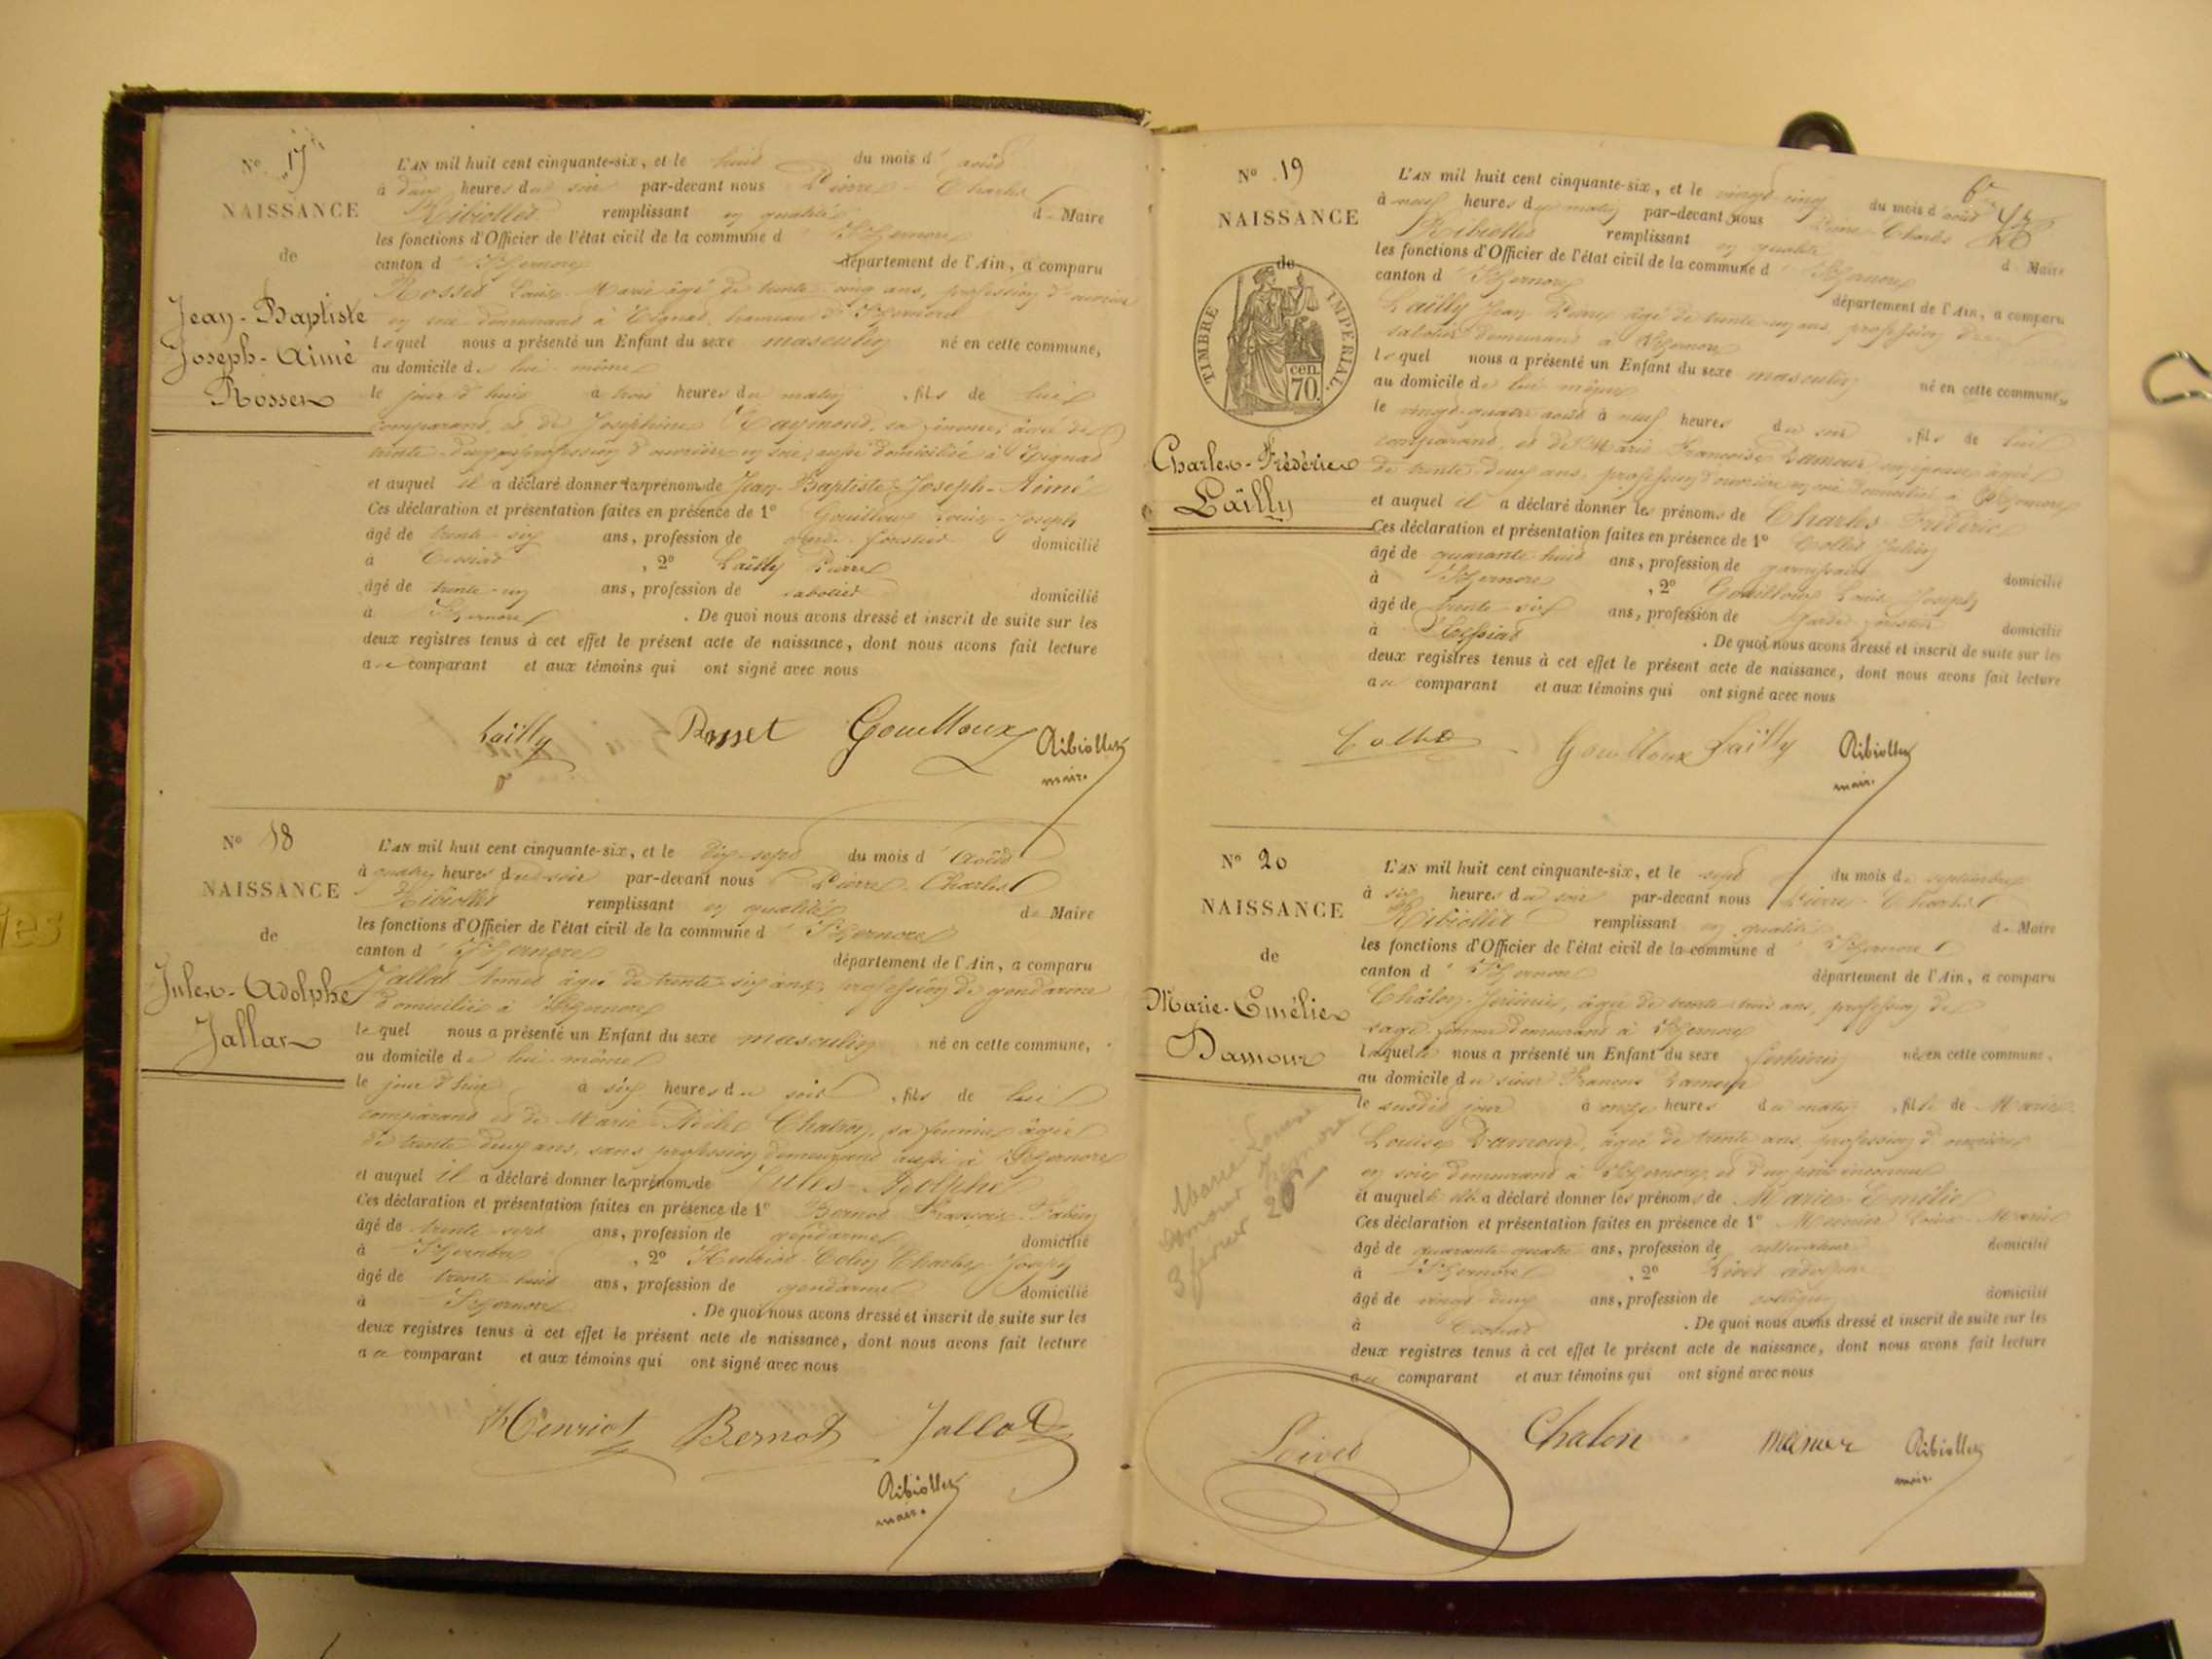 Nº 17
NAISSANCE
de
Jean-Baptiste
Joseph-Aimé
Rosset
L'AN mil huit cent cinquante-six, et le huit du mois d' août
à deux heures du soir par-devant nous Pierre-Charles
Ribiollet remplissant en qualité de Maire
les fonctions d'Officier de l'état civil de la commune d' Izernore
canton d' Izernore département de l'Ain, a comparu
Rosset Louis-Marie âgé de trente cinq ans, profession d'ouvrier
en soie demeurant à Tignat, hameau d'Izernore
lequel nous a présenté un Enfant du sexe masculin né en cette commune,
au domicile de lui-même
le jour d'hui à trois heures du matin, fils de lui
comparant, et de Joséphine Raymond, sa femme, âgée de
trente deux profession d'ouvrière en soie, aussi domiciliée à Tignat
et auquel il a déclaré donner les prénoms de Jean-Baptiste-Joseph-Aimé
Ces déclaration et présentation faites en présence de 1º Gouilloux Louis-Joseph
âgé de trente six ans, profession de garde forestier domicilié
à Cessiat, 2º Laïlly Pierre
âgé de trente-un ans, profession de sabotier domicilié
à Izernore. De quoi nous avons dressé et inscrit de suite sur les
deux registres tenus à cet effet le présent acte de naissance, dont nous avons fait lecture
au comparant et aux témoins qui ont signé avec nous
Laïlly Rosset Gouilloux Ribiollet
maire.
Nº 18
NAISSANCE
de
Jules-Adolphe
Jallat
L'AN mil huit cent cinquante-six, et le dix-sept du mois d' Août
à quatre heures du soir par-devant nous Pierre-Charles
Ribiollet remplissant en qualité de Maire
les fonctions d'Officier de l'état civil de la commune d' Izernore
canton d' Izernore département de l'Ain, a comparu
Jallat âgé de trente-six ans, profession de gendarme
domicilié à Izernore
lequel nous a présenté un Enfant du sexe masculin né en cette commune,
au domicile de lui-même
le jour d'hier à six heures du soir, fils de lui
comparant et de Marie Adèle Chatron, sa femme âgée
de trente deux ans, sans profession demeurant aussi à Izernore
et auquel il a déclaré donner les prénoms de Jules-Adolphe
Ces déclaration et présentation faites en présence de 1º Bernot François
âgé de trente-sept ans, profession de gendarme domicilié
à Izernore, 2º Henriot Charles Joseph
âgé de trente-huit ans, profession de gendarme domicilié
à Izernore. De quoi nous avons dressé et inscrit de suite sur les
deux registres tenus à cet effet le présent acte de naissance, dont nous avons fait lecture
au comparant et aux témoins qui ont signé avec nous
Henriot Bernot Jallat
Ribiollet
maire.
Nº 19
NAISSANCE
de
TIMBRE IMPÉRIAL.
cen.
70.
Charles-Frédéric
Laïlly
L'AN mil huit cent cinquante-six, et le vingt-cinq du mois d'août
à neuf heures du matin par-devant nous Pierre-Charles
Ribiollet remplissant en qualité de Maire
les fonctions d'Officier de l'état civil de la commune d' Izernore
canton d' Izernore département de l'Ain, a comparu
Laïlly Jean Pierre âgé de trente-un ans, profession de
sabotier demeurant à Izernore
lequel nous a présenté un Enfant du sexe masculin né en cette commune,
au domicile de lui même
le vingt-quatre août à neuf heures du soir, fils de lui
comparant, et de Marie Françoise Damour son épouse âgée
de trente-deux ans, profession d'ouvrière en soie domiciliée à Izernore
et auquel il a déclaré donner les prénoms de Charles Frédéric
Ces déclaration et présentation faites en présence de 1º Collet Julien
âgé de quarante-huit ans, profession de domicilié
à Izernore, 2º Gouilloux Louis Joseph
âgé de trente-six ans, profession de garde forestier domicilié
à Cessiat. De quoi nous avons dressé et inscrit de suite sur les
deux registres tenus à cet effet le présent acte de naissance, dont nous avons fait lecture
au comparant et aux témoins qui ont signé avec nous
Collet Gouilloux Laïlly Ribiollet
maire.
Nº 20
NAISSANCE
de
Marie-Emélie
Damour
Marie Louise
Damour Izernore
3 février 26
L'AN mil huit cent cinquante-six, et le sept du mois de septembre
à six heures du soir par-devant nous Pierre-Charles
Ribiollet remplissant en qualité de Maire
les fonctions d'Officier de l'état civil de la commune d' Izernore
canton d' Izernore département de l'Ain, a comparu
Châlon, âgée de trente-trois ans, profession de
sage femme demeurant à Izernore
laquelle nous a présenté un Enfant du sexe féminin née en cette commune,
au domicile du sieur François Damour
le susdit jour à onze heures du matin, fille de Marie
Louise Damour, âgée de trente ans, profession d'ouvrière
en soie demeurant à Izernore, et d'un père inconnu
et auquel elle a déclaré donner les prénoms de Marie-Emélie
Ces déclaration et présentation faites en présence de 1º Louis-Marie
âgé de quarante-quatre ans, profession de cultivateur domicilié
à Izernore, 2º
âgé de vingt-deux ans, profession de domicilié
à. De quoi nous avons dressé et inscrit de suite sur les
deux registres tenus à cet effet le présent acte de naissance, dont nous avons fait lecture
au comparant et aux témoins qui ont signé avec nous
Chalon Ribiollet
maire.